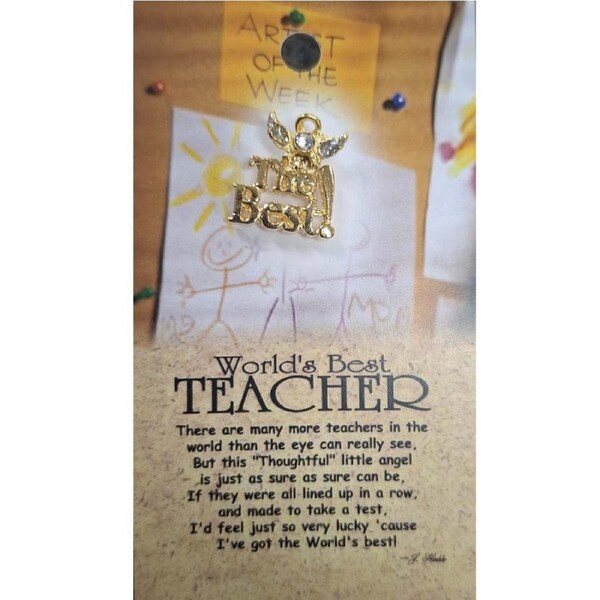 ARTIST
OF THE
WEEK
The
Best!
World's Best
TEACHER
There are many more teachers in the
world than the eye can really see,
But this "Thoughtful" little angel
is just as sure as sure can be,
If they were all lined up in a row,
and made to take a test,
I'd feel just so very lucky 'cause
I've got the World's best!